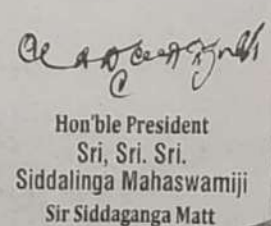 Hon'ble President
Sri, Sri. Sri.
Siddalinga Mahaswamiji
Sir Siddaganga Matt